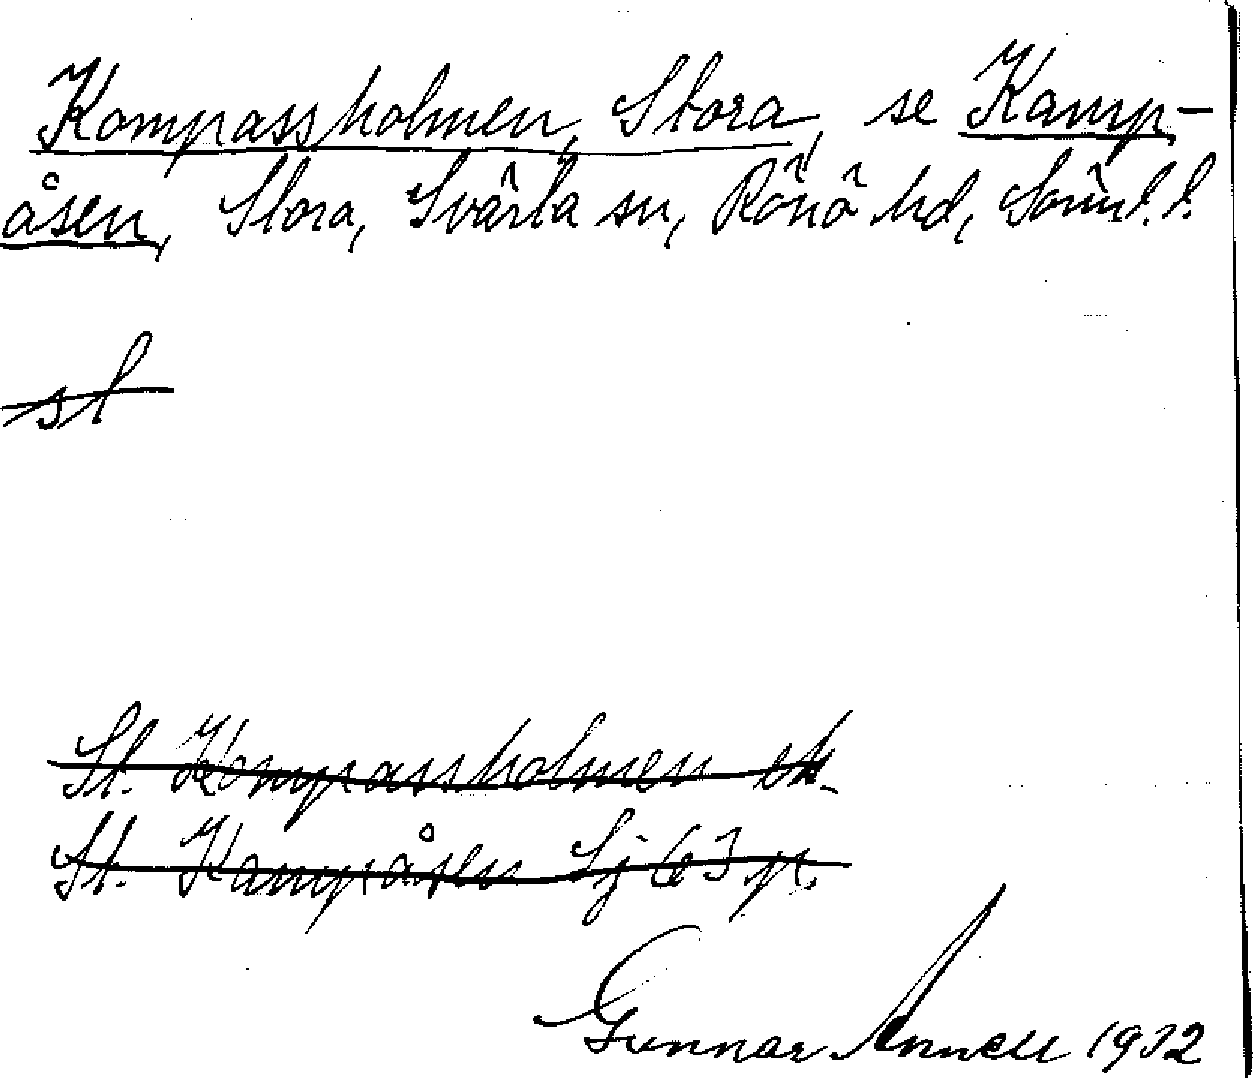 Kompassholmen, Stora, se Kamp-
åsen, Stora, Svärta sn, Rönö hd, Sörml. l.
sl
St. Kompassholmen ek.
St. Kampåsen Sj 63 n.
Gunnar Annell 1932